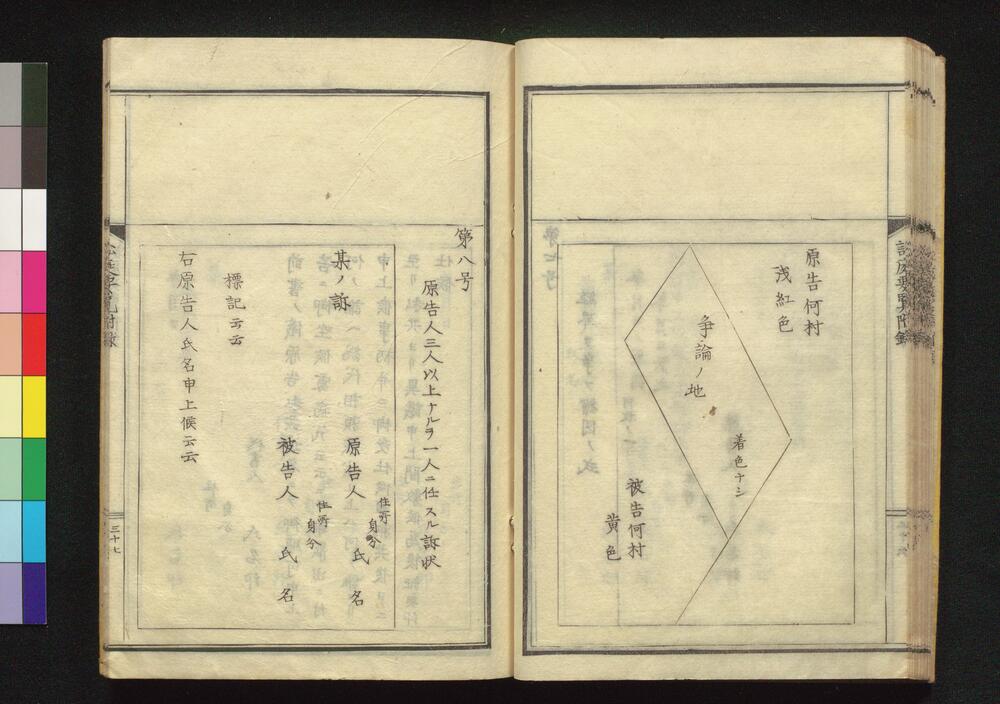 原告何村
浅紅色
争論ノ地
着色ナシ
被告何村
黄色
第八号
原告人三人以上ナルヲ一人ニ任スル訴状
某ノ訴
住所
身分
原告人　氏名
住所
身分
被告人　氏名
標記云云
右原告人氏名申上候云云
三十七